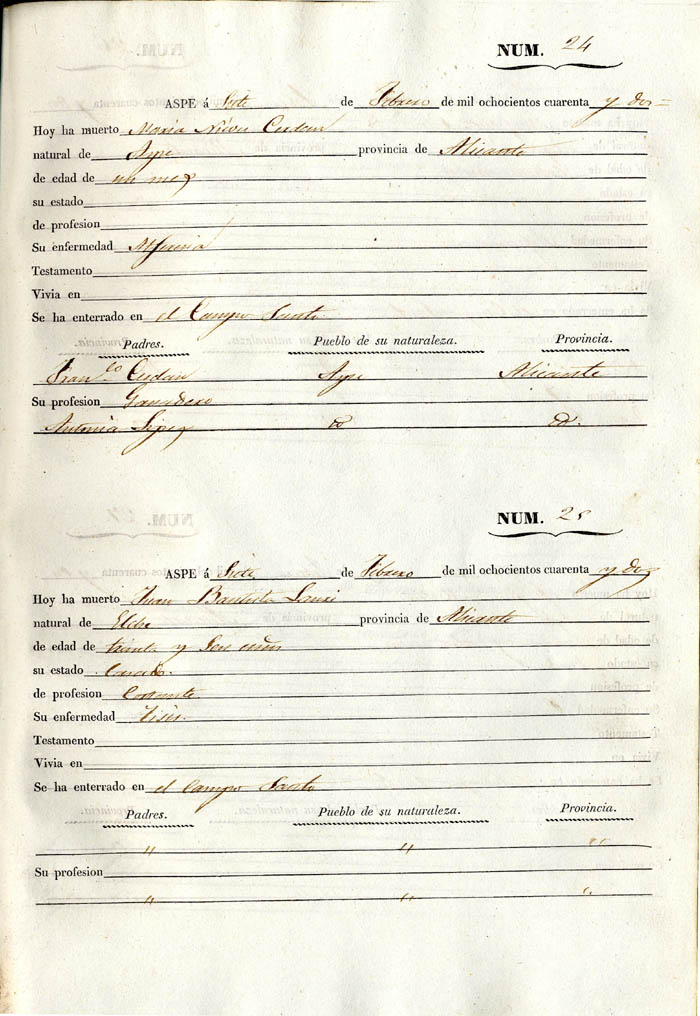 NUM. 24
ASPE á Siete de Febrero de mil ochocientos cuarenta y dos
Hoy ha muerto Maria Nieves
natural de Aspe provincia de Alicante
de edad de un mes
su estado
de profesion
Su enfermedad Alferecia
Testamento
Vivia en
Se ha enterrado en el Campo Santo
Padres. Pueblo de su naturaleza. Provincia.
Fran.co Aspe Alicante
Su profesion Ganadero
Antonia Lopez
NUM. 25
ASPE á Siete de Febrero de mil ochocientos cuarenta y dos
Hoy ha muerto Juan Bautista
natural de Elche provincia de Alicante
de edad de treinta y seis años
su estado Casado
de profesion Comerciante
Su enfermedad Tisis
Testamento
Vivia en
Se ha enterrado en el Campo Santo
Padres. Pueblo de su naturaleza. Provincia.
" " "
Su profesion
" " "